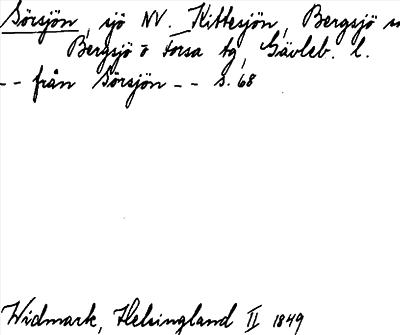 Sörsjön, sjö NV. Kittesjön, Bergsjö sn
Bergsjö o Forsa tg, Gävleb. l.
-- från Sörsjön -- s. 68
Widmark, Helsingland II 1849